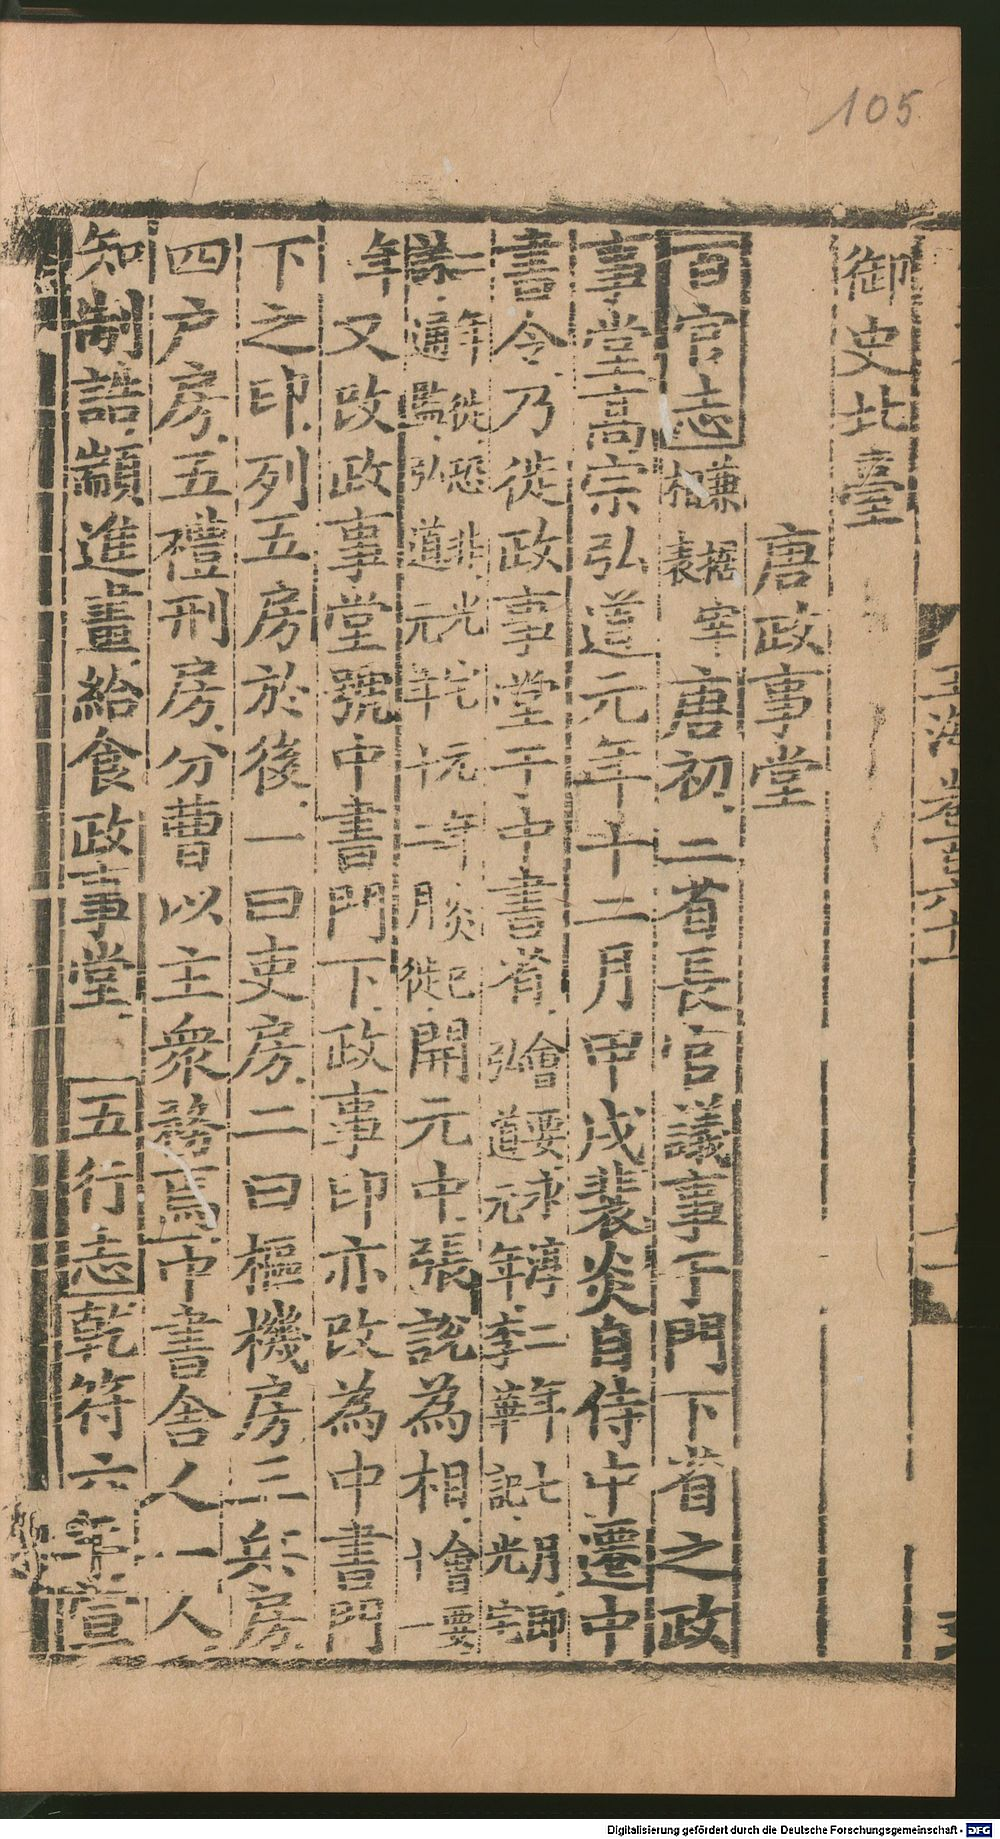 105
御史北臺
唐政事堂
百官志兼據宰相表唐初二省長官議事于門下省之政
事堂高宗弘道元年十二月甲戌裴炎自侍中遷中
書令乃徙政事堂于中書省會要永淳二年七月即弘道元年李華記光宅
二年徙恐非光宅元年炎已誅通鑑弘道元年十二月徙開元中張說為相會要十一
年又改政事堂號中書門下政事印亦改為中書門
下之印列五房於後一曰吏房二曰樞機房三兵房
四户房五禮刑房分曹以主衆務焉中書舍人一人
知制誥顓進畫給食政事堂 五行志乾符六年宣
Digitalisierung gefördert durch die Deutsche Forschungsgemeinschaft - DFG